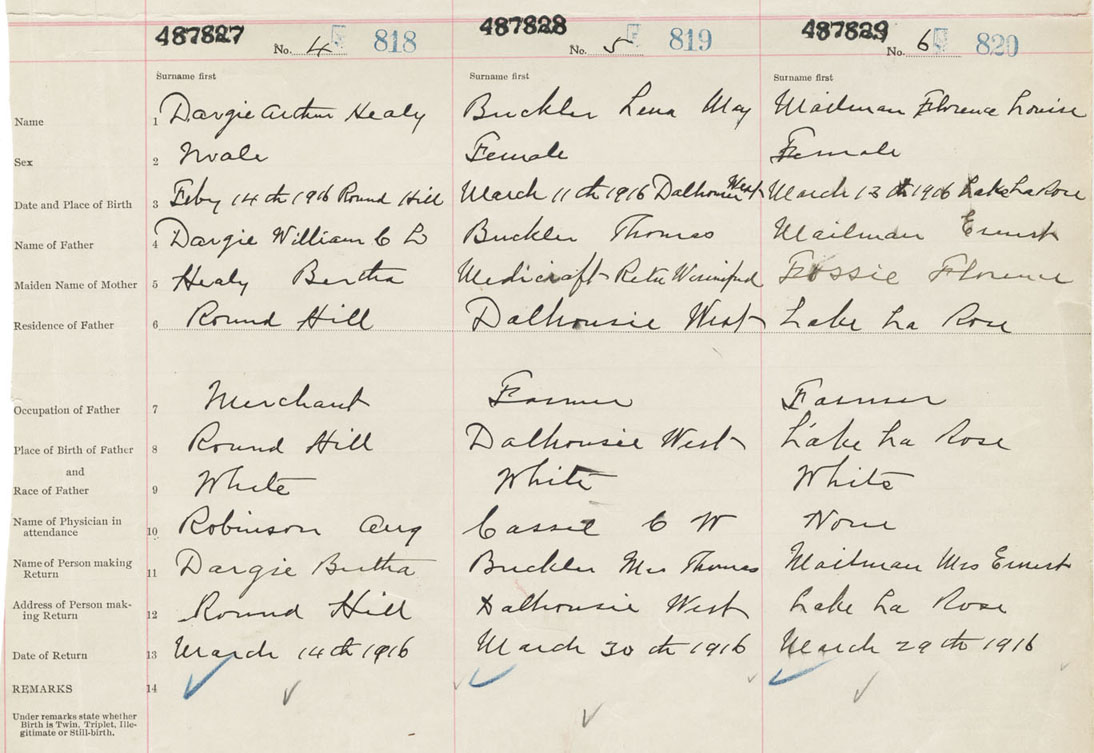 487827 487828 487829
No. 4 818 No. 5 819 No. 6 820
Surname first Surname first Surname first
Name 1 Dargie Arthur Healy Buckler Lena May Mailman Florence Louise
Sex 2 Male Female Female
Date and Place of Birth 3 Feby 14th 1916 Round Hill March 11th 1916 Dalhousie West March 13th 1916 Lake La Rose
Name of Father 4 Dargie William C Buckler Thomas Mailman Ernest
Maiden Name of Mother 5 Healy Bertha Medicraft Reta Winnifred Florence
Residence of Father 6 Round Hill Dalhousie West Lake La Rose
Occupation of Father 7 Merchant Farmer Farmer
Place of Birth of Father 8 Round Hill Dalhousie West Lake La Rose
and
Race of Father 9 White White White
Name of Physician in
attendance 10 Robinson Aug C W None
Name of Person making
Return 11 Dargie Bertha Buckler Mrs Thomas Mailman Mrs Ernest
Address of Person mak-
ing Return 12 Round Hill Dalhousie West Lake La Rose
Date of Return 13 March 14th 1916 March 30th 1916 March 29th 1916
REMARKS 14
Under remarks state whether
Birth is Twin, Triplet, Ille-
gitimate or Still-birth.